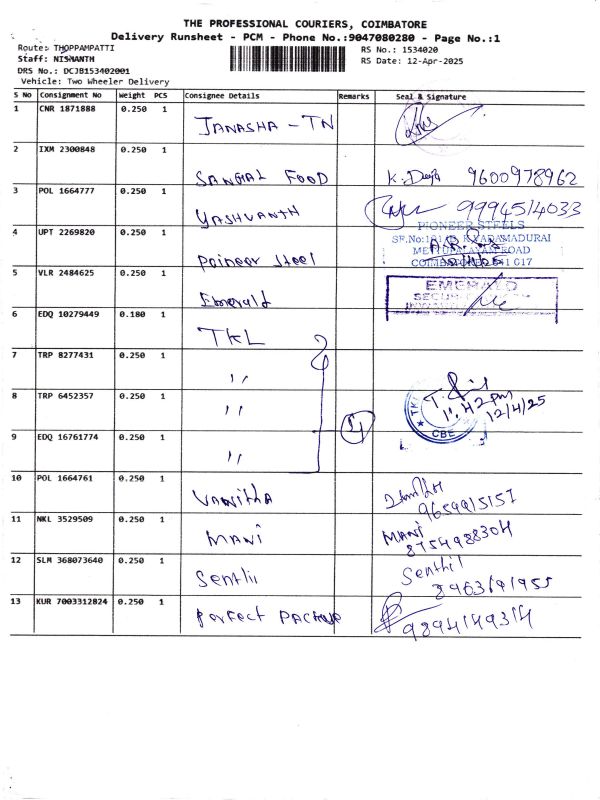 THE PROFESSIONAL COURIERS, COIMBATORE
Delivery Runsheet - PCM - Phone No.:9047080280 - Page No.:1
Route: THOPPAMPATTI
RS No.: 1534020
Staff: NISHANTH
RS Date: 12-Apr-2025
DRS No.: DCJB153402001
Vehicle: Two Wheeler Delivery
S No Consignment No Weight PCS Consignee Details Remarks Seal & Signature
1 CNR 1871888 0.250 1 JANASHA - TN
2 IXM 2300848 0.250 1 FOOD K. 9600978962
3 POL 1664777 0.250 1 YASHVANTH 9994514033
4 UPT 2269820 0.250 1 Paineer Steel
PIONEER STEELS
MADURAI
ROAD
5 VLR 2484625 0.250 1 Emerald
EMERALD
6 EDQ 10279449 0.180 1 TKL
7 TRP 8277431 0.250 1 ,,
8 TRP 6452357 0.250 1 ,,
TKL
11.42 pm
12/4/25
CBE
9 EDQ 16761774 0.250 1 ,,
10 POL 1664761 0.250 1 VANITHA
9659915157
11 NKL 3529509 0.250 1 MANI MANI
8754988304
12 SLM 368073640 0.250 1 Senthil
8903191955
13 KUR 7003312824 0.250 1 Perfect
9894149314